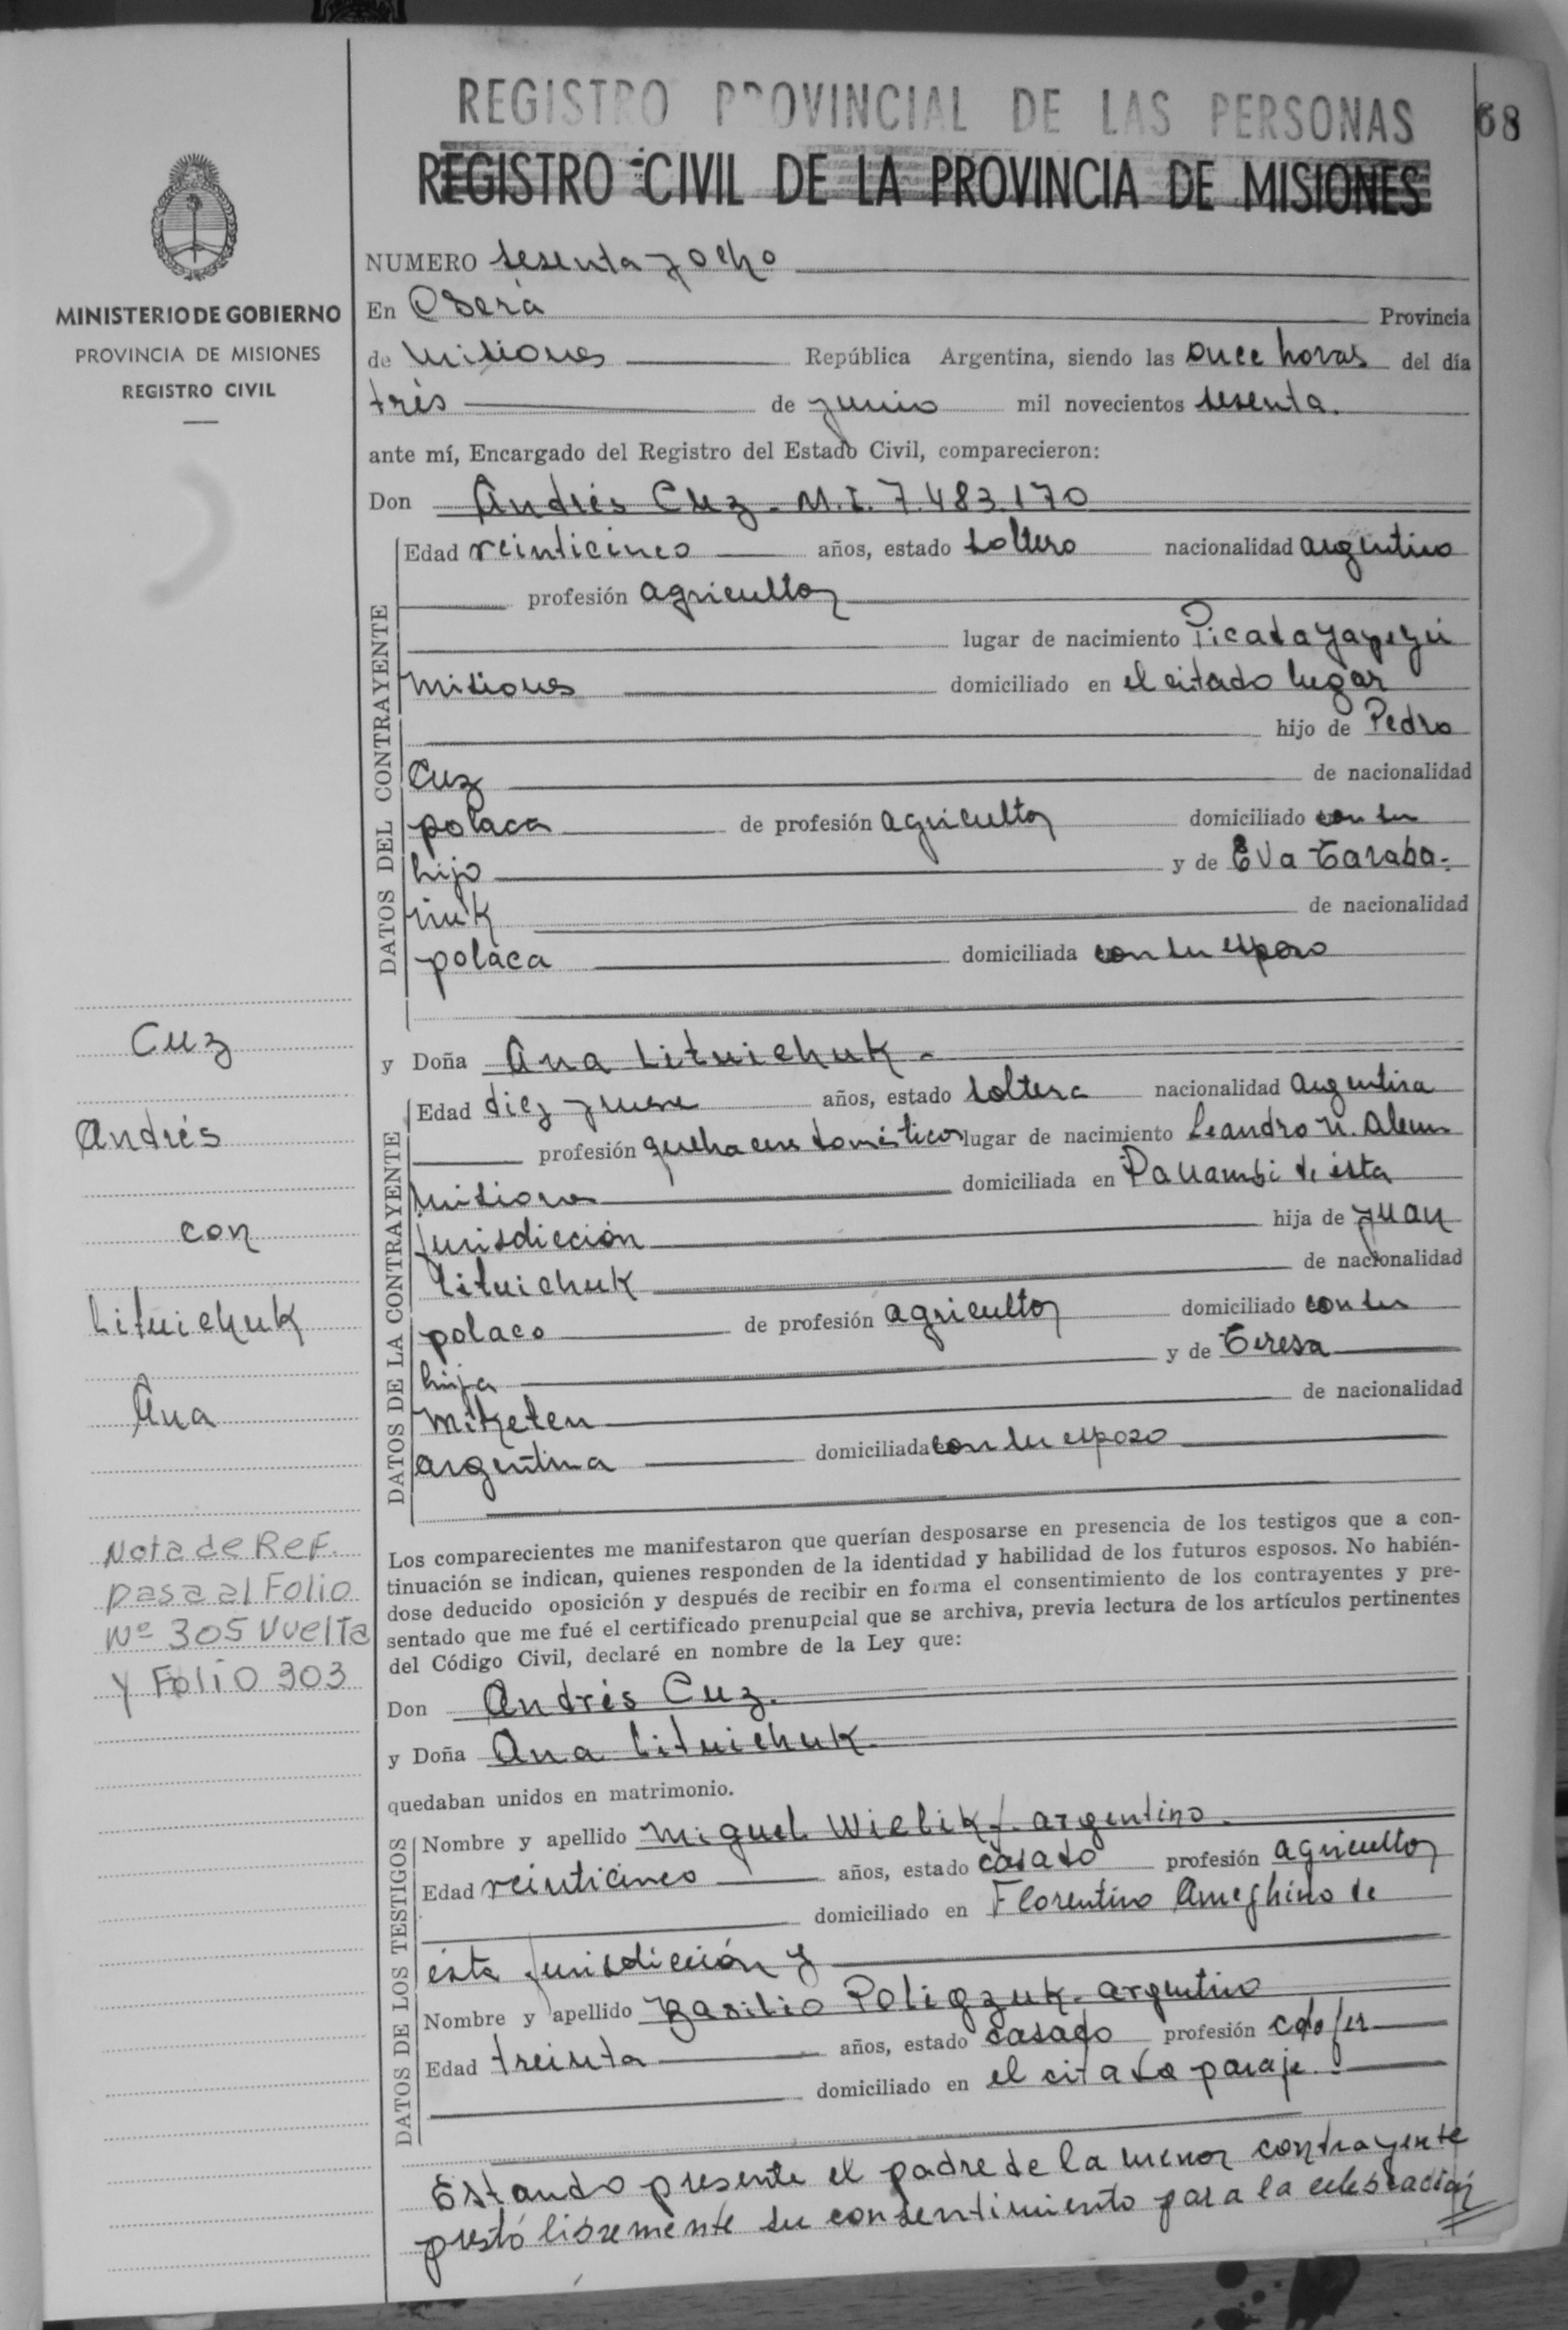 REGISTRO PROVINCIAL DE LAS PERSONAS
68
REGISTRO CIVIL DE LA PROVINCIA DE MISIONES
MINISTERIO DE GOBIERNO
PROVINCIA DE MISIONES
REGISTRO CIVIL
NUMERO sesenta y ocho
En Oberá Provincia
de Misiones República Argentina, siendo las once horas del día
tres de junio mil novecientos sesenta.
ante mí, Encargado del Registro del Estado Civil, comparecieron:
Don Andrés Cuz - M.I. 7.483.170
DATOS DEL CONTRAYENTE
Edad veinticinco años, estado soltero nacionalidad argentino
profesión agricultor
lugar de nacimiento Picada Yapeyú
Misiones domiciliado en el citado lugar
hijo de Pedro
Cuz de nacionalidad
polaca de profesión agricultor domiciliado con su
hijo y de Eva Taraba-
niuk de nacionalidad
polaca domiciliada con su esposo
y Doña Ana Lituichuk -
DATOS DE LA CONTRAYENTE
Edad diez y nueve años, estado soltera nacionalidad argentina
profesión quehaceres domésticos lugar de nacimiento Leandro N. Alem
Misiones domiciliada en Panambi de ésta
jurisdicción hija de Juan
Lituichuk de nacionalidad
polaco de profesión agricultor domiciliado con su
hija y de Teresa
Miketen de nacionalidad
argentina domiciliada con su esposo
Cuz
Andrés
con
Lituichuk
Ana
Nota de Ref.
pasa al Folio
Nº 305 Vuelta
y Folio 303
Los comparecientes me manifestaron que querían desposarse en presencia de los testigos que a con-
tinuación se indican, quienes responden de la identidad y habilidad de los futuros esposos. No habién-
dose deducido oposición y después de recibir en forma el consentimiento de los contrayentes y pre-
sentado que me fué el certificado prenupcial que se archiva, previa lectura de los artículos pertinentes
del Código Civil, declaré en nombre de la Ley que:
Don Andrés Cuz.
y Doña Ana Lituichuk.
quedaban unidos en matrimonio.
DATOS DE LOS TESTIGOS
Nombre y apellido Miguel Wielik - argentino.
Edad veinticinco años, estado casado profesión agricultor
domiciliado en Florentino Ameghino de
ésta jurisdicción y
Nombre y apellido Basilio Poligzuk - argentino
Edad treinta años, estado casado profesión
domiciliado en el citado paraje.
Estando presente el padre de la menor contrayente
prestó libremente su consentimiento para la celebración